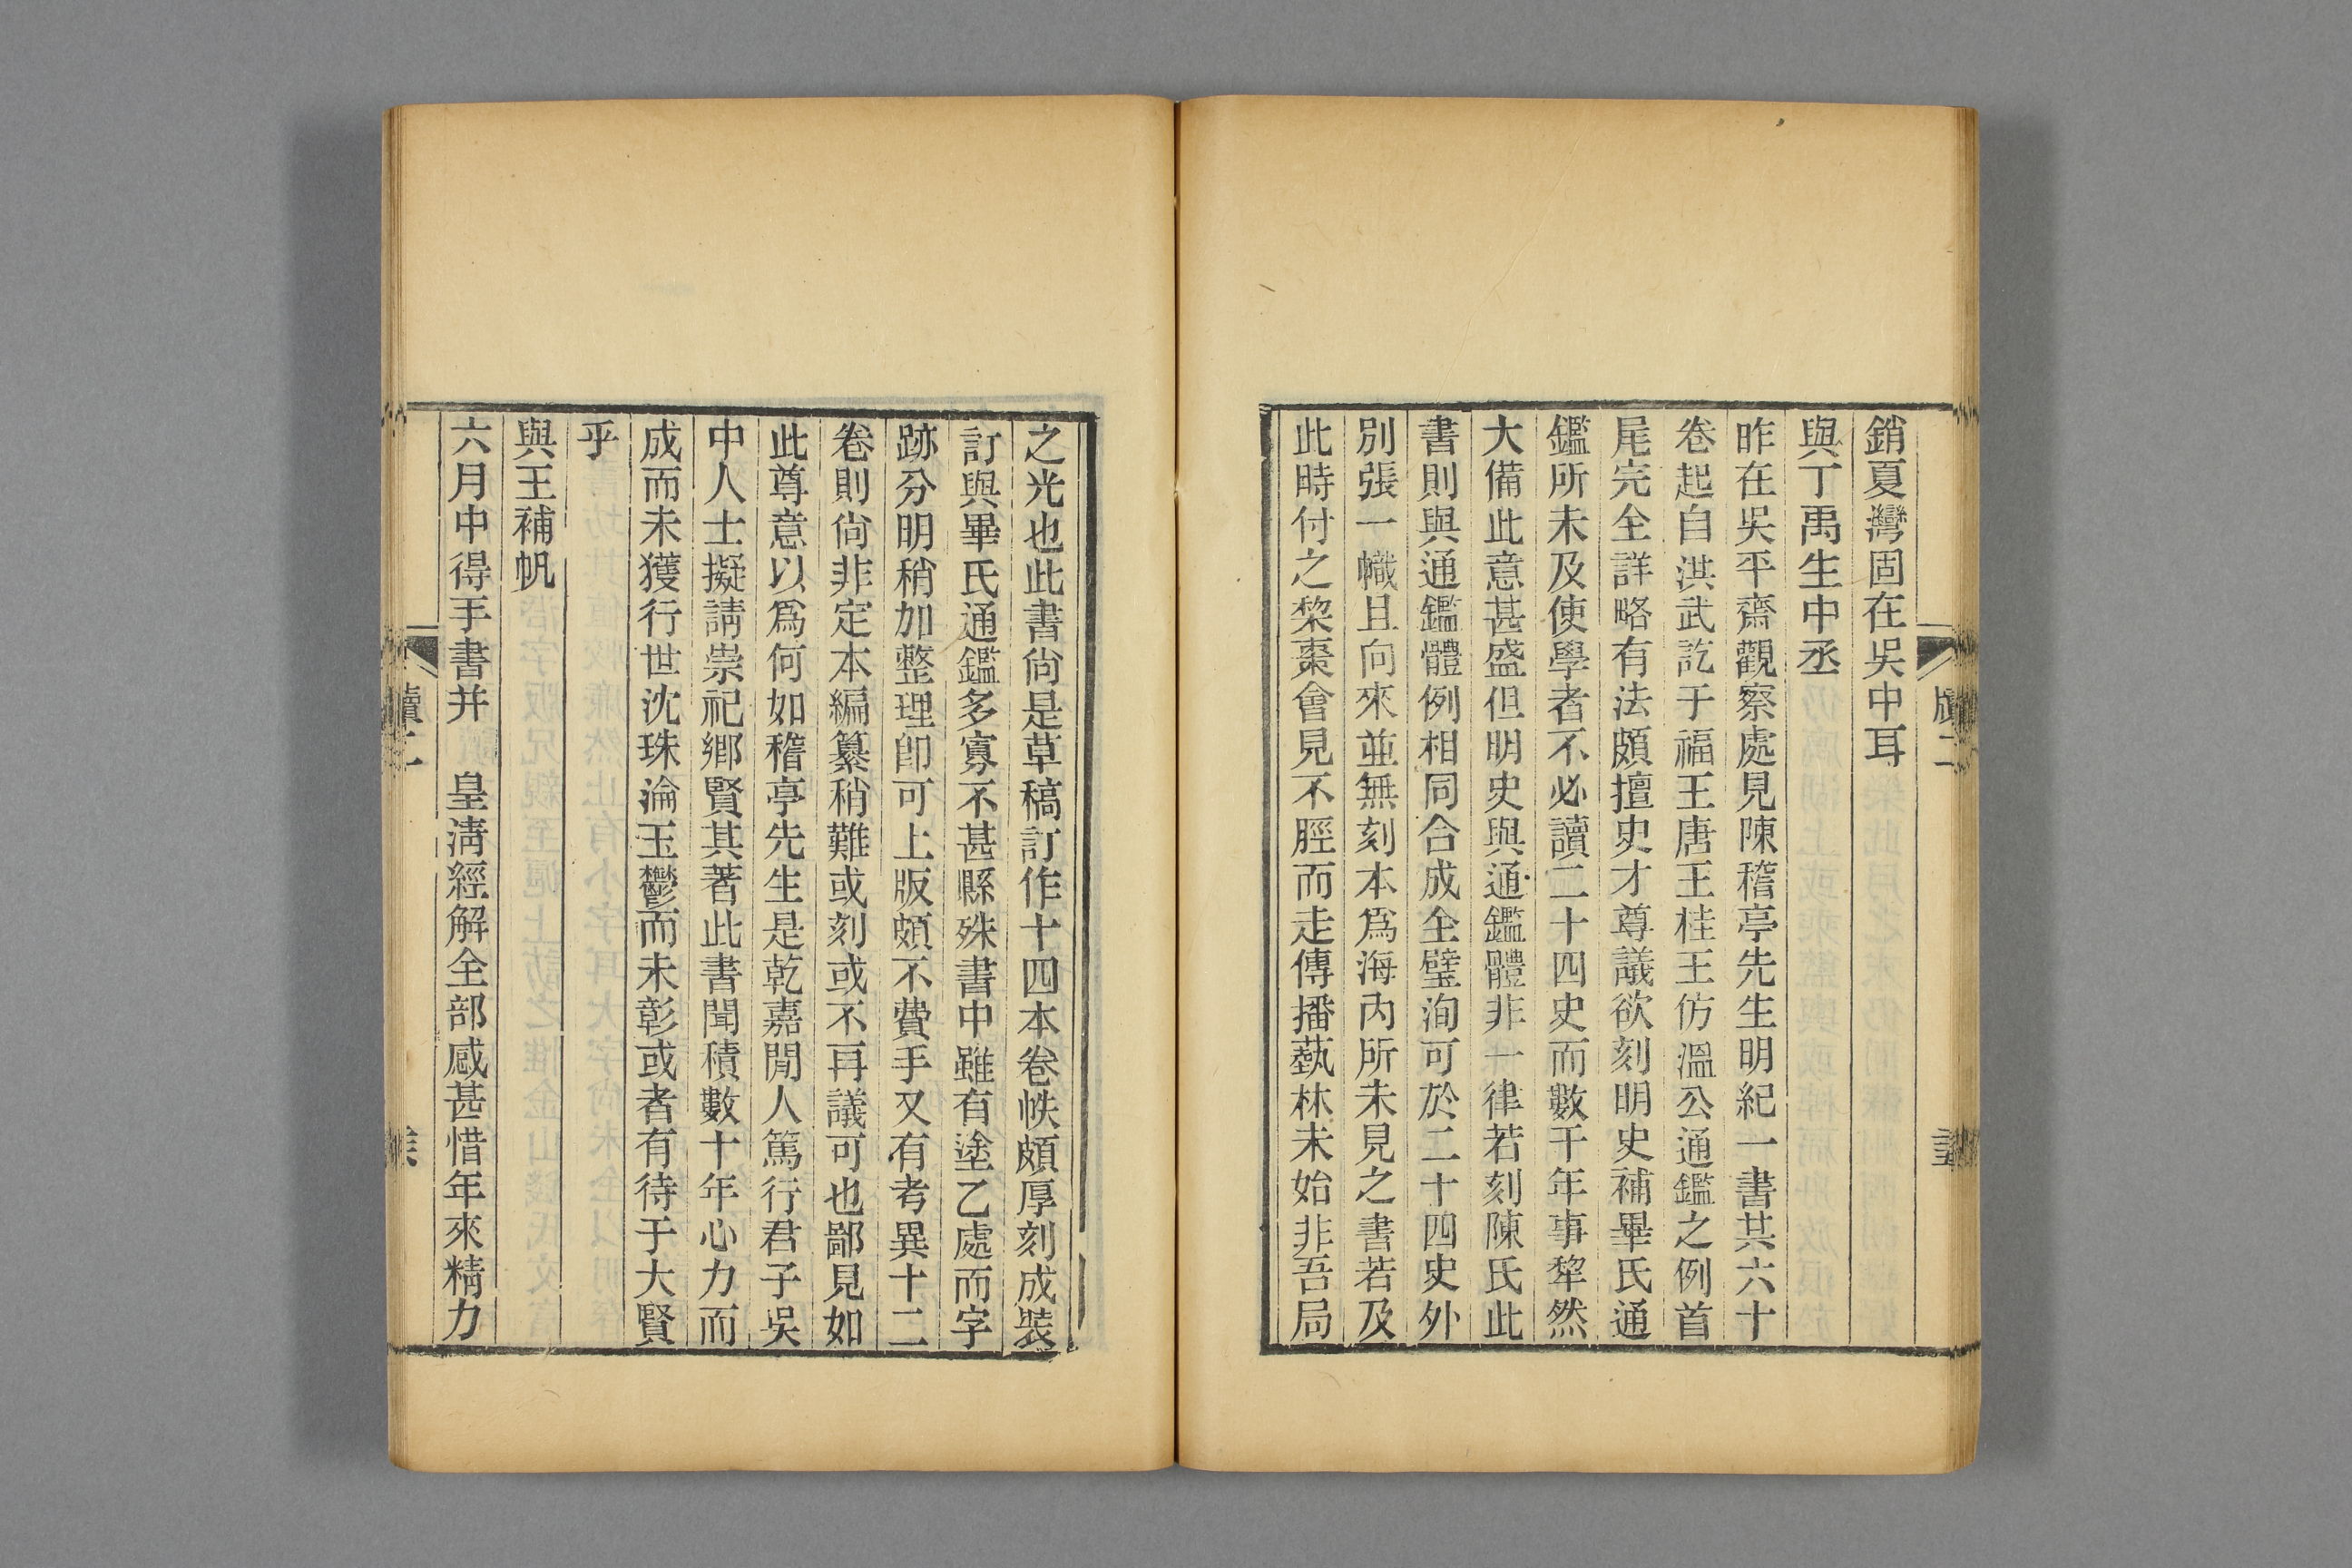 銷夏灣固在吳中耳
與丁禹生中丞
昨在吳平齋觀察處見陳稽亭先生明紀一書共六十
卷起自洪武訖于福王唐王桂王仿溫公通鑑之例首
尾完全詳略有法頗擅史才尊議欲刻明史補畢氏通
鑑所未及使學者不必讀二十四史而數千年事犂然
大備此意甚盛但明史與通鑑體非一律若刻陳氏此
書則與通鑑體例相同合成全璧洵可於二十四史外
別張一幟且向來並無刻本爲海內所未見之書若及
此時付之棃棗會見不脛而走傳播藝林未始非吾局
之光也此書尙是草稿訂作十四本卷帙頗厚刻成裝
訂與畢氏通鑑多寡不甚縣殊書中雖有塗乙處而字
跡分明稍加整理卽可上版頗不費手又有考異十二
卷則尙非定本編纂稍難或刻或不再議可也鄙見如
此尊意以爲何如稽亭先生是乾嘉閒人篤行君子吳
中人士擬請崇祀鄉賢其著此書聞積數十年心力而
成而未獲行世沈珠淪玉鬱而未彰或者有待于大賢
乎
與王補帆
六月中得手書并　皇淸經解全部感甚惜年來精力
牘二